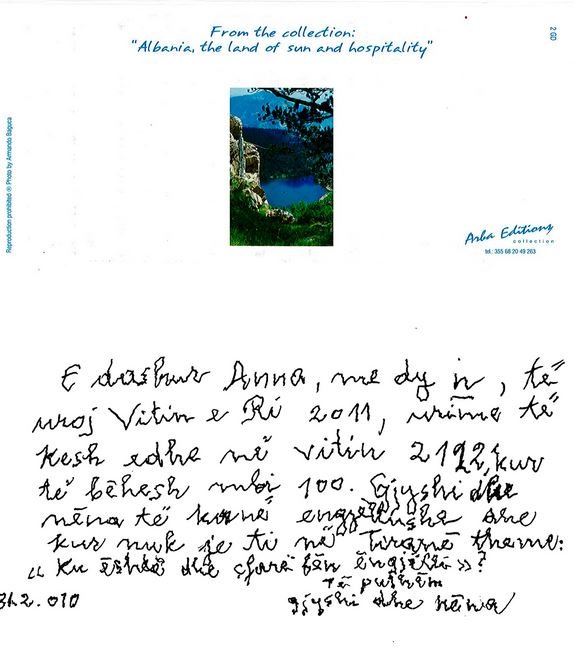 From the collection:
"Albania, the land of sun and hospitality"
2 GD
Reproduction prohibited ® Photo by Armando Babuca
Arba Editions
collection
tel.: 355 68 20 49 263
E dashur Anna, me dy n, të
uroj Vitin e Ri 2011, urime të
kesh edhe në vitin 2112, kur
të bëhesh mbi 100. Gjyshi dhe
nëna të kanë engjëllushe dhe
kur nuk je ti në Tiranë thame:
"Ku është dhe çfarë bën ëngjëlli"?
Të puthim
gjyshi dhe nëna
31.2.010